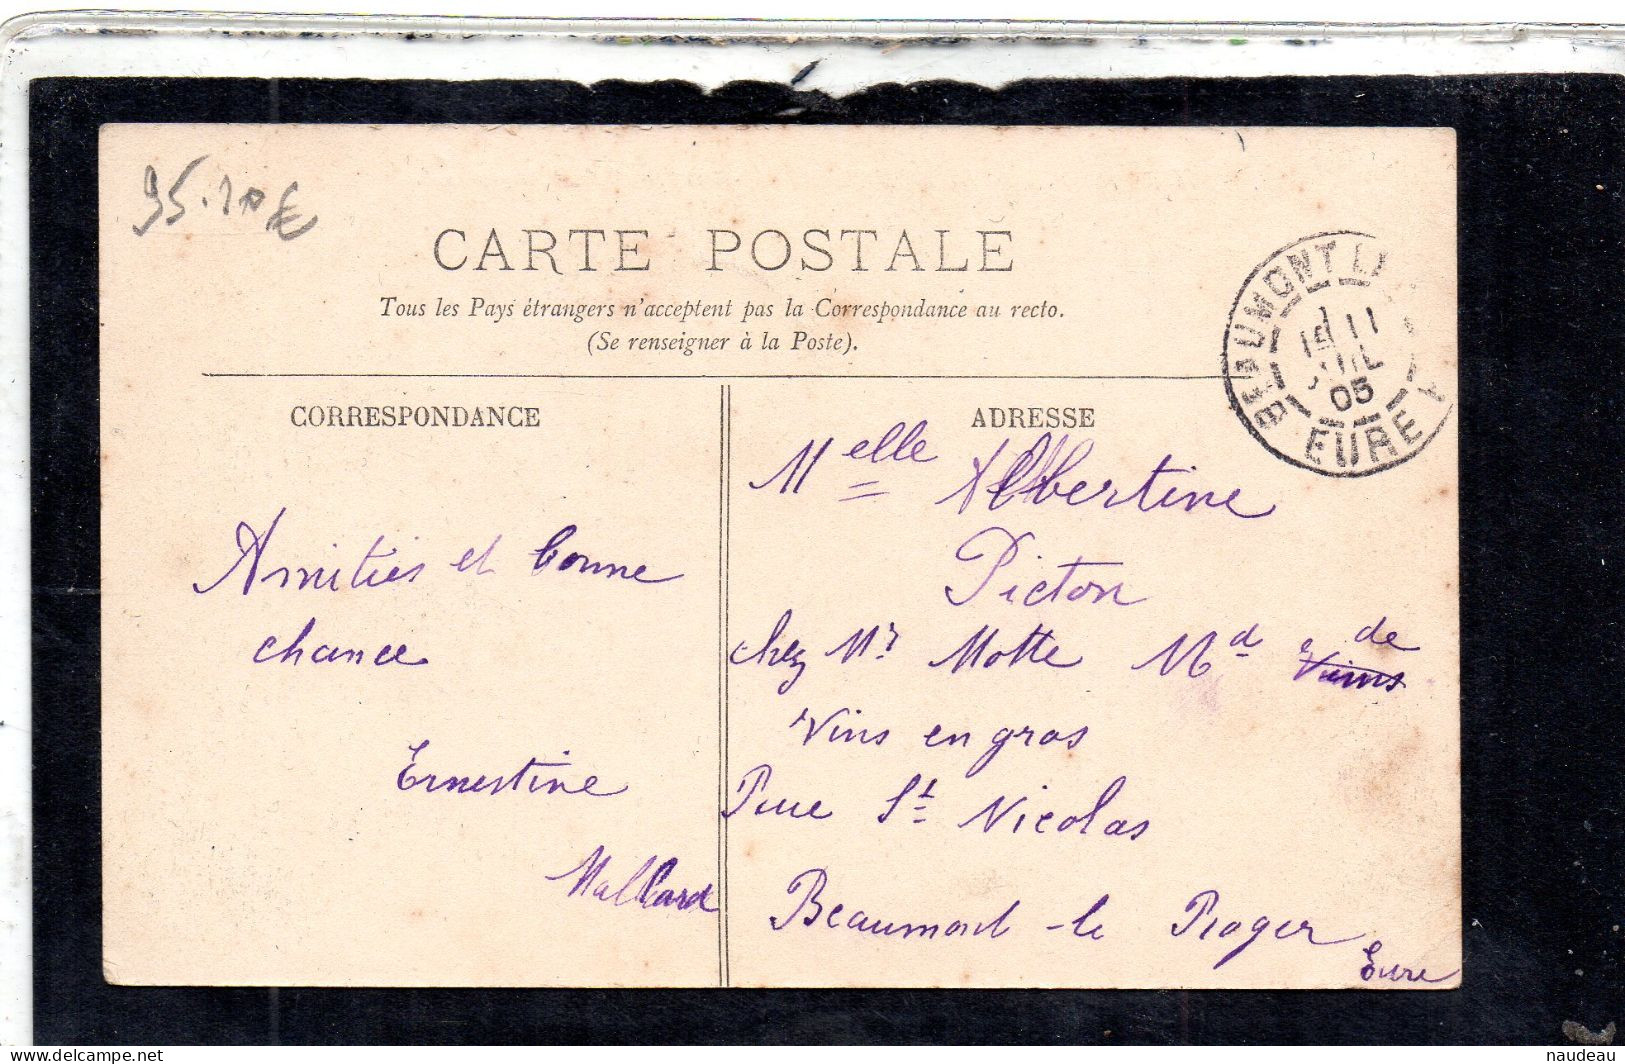 95.10€
CARTE POSTALE
Tous les Pays étrangers n'acceptent pas la Correspondance au recto.
(Se renseigner à la Poste).
CORRESPONDANCE
Amitiés et bonne
chance
Ernestine
Mallard
ADRESSE
Melle Albertine
Picton
chez Mr Motte Md de
Vins en gros
Rue St Nicolas
Beaumont-le Roger
Eure
BEAUMONT LE
05
EURE
delcampe.net
naudeau